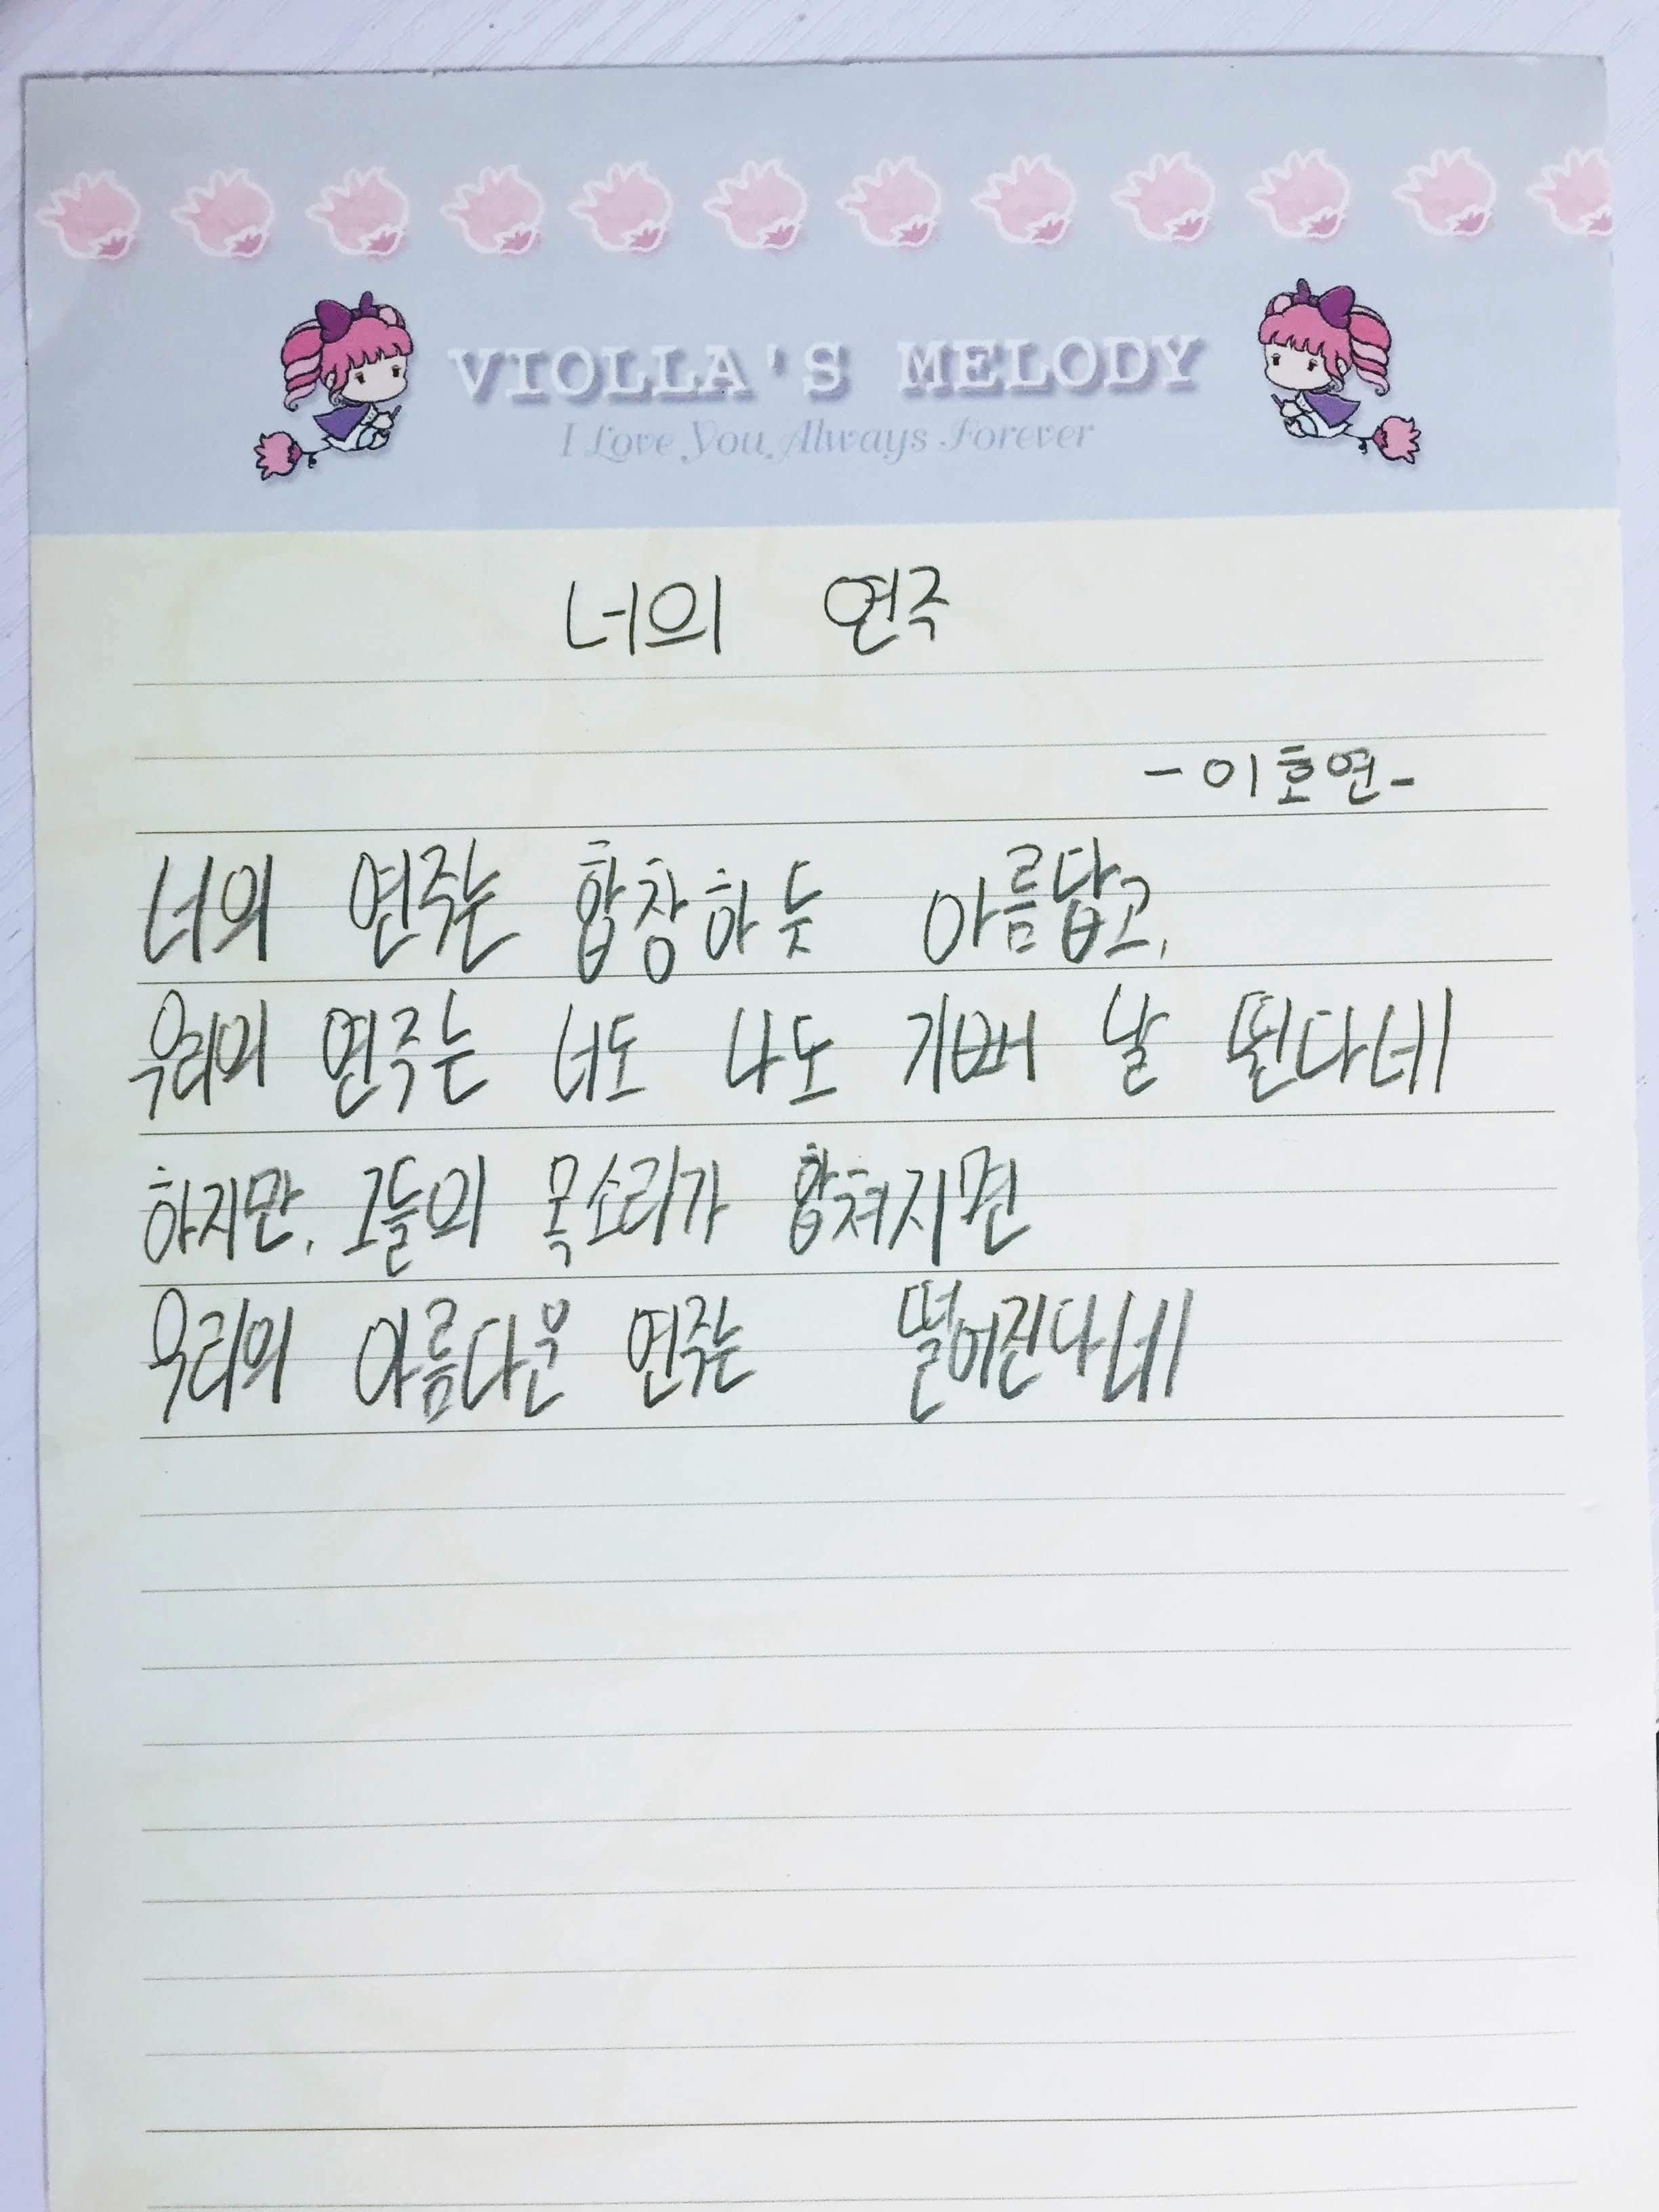 VIOLLA'S MELODY
I Love You, Always Forever
너의 연주
-이호연-
너의 연주는 합창하듯 아름답고,
우리의 연주는 너도 나도 기뻐 날 뛴다네
하지만, 그들의 목소리가 합쳐지면
우리의 아름다운 연주는 떨어진다네